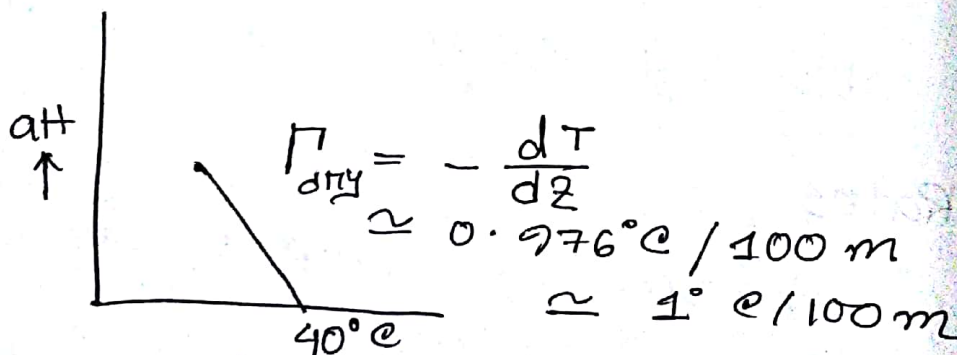 aH
↑
Γdry = - dT/dz
≃ 0.976°C / 100 m
≃ 1° C/100m
40°C